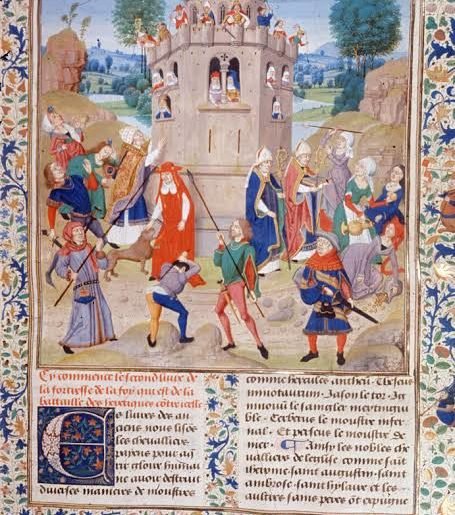 Cy commence le second liure de
la forteresse de la foy qui est de la
bataille des heretiques contre icelle
Es liures des an
ciens nous lisons
les cheualliers
pour
gloire humai
ne auoir destruit
diuerses manieres de monstres
comme hercules antheu. Theseus
minotaurum. Jason le tor.
le sanglier
ble. Cerberus le monstre infer
nal. Et perseus le monstre de
mer. Ainsy les nobles che
ualliers de leglise comme saint
iherome saint augustin. saint
ambrose. saint hylaire et les
aultres sains peres ot expugne